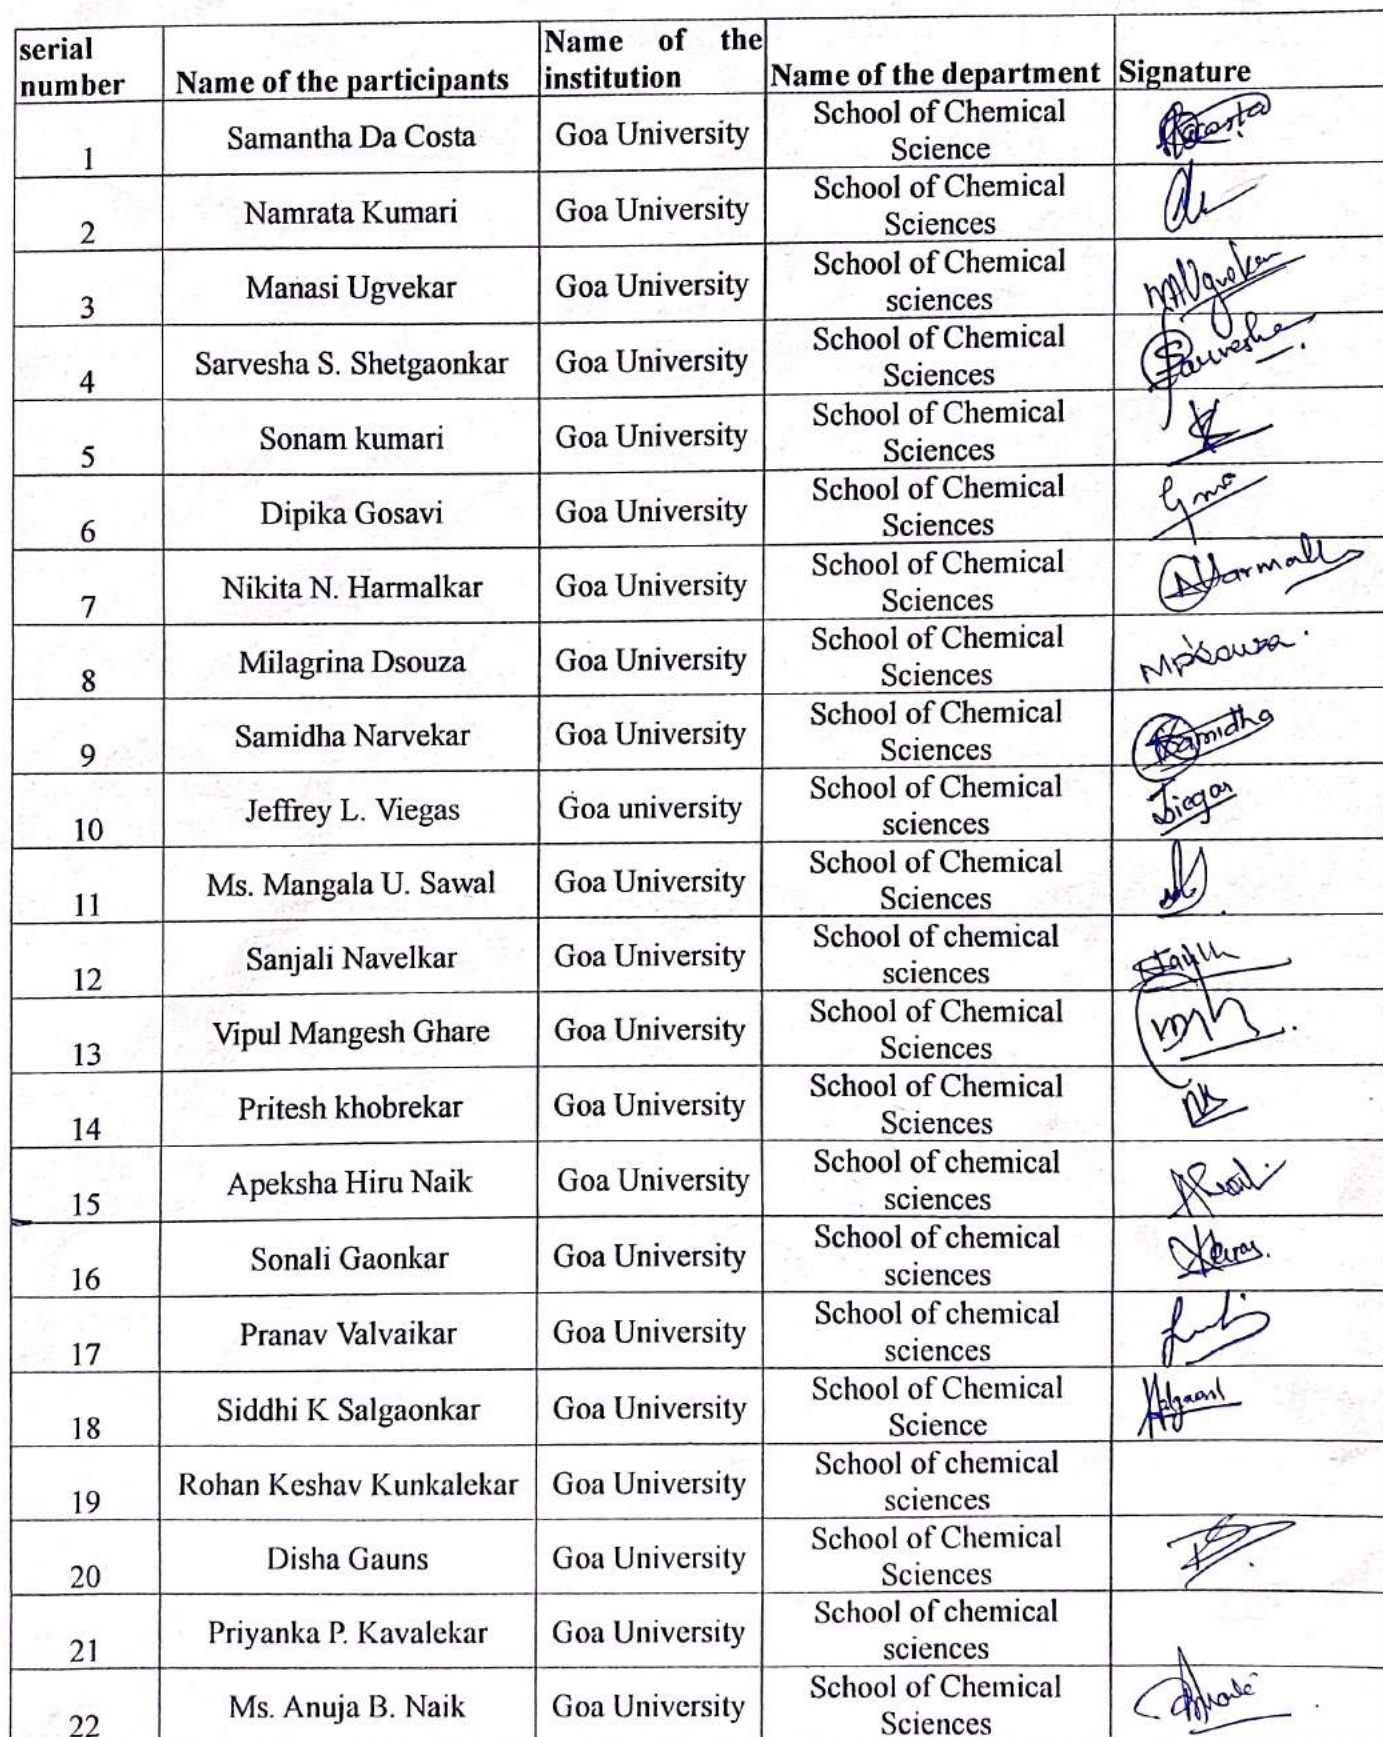 serial number Name of the participants Name of the institution Name of the department Signature
1 Samantha Da Costa Goa University School of Chemical Science
2 Namrata Kumari Goa University School of Chemical Sciences
3 Manasi Ugvekar Goa University School of Chemical sciences MAUgvekar
4 Sarvesha S. Shetgaonkar Goa University School of Chemical Sciences Sarvesha
5 Sonam kumari Goa University School of Chemical Sciences
6 Dipika Gosavi Goa University School of Chemical Sciences
7 Nikita N. Harmalkar Goa University School of Chemical Sciences
8 Milagrina Dsouza Goa University School of Chemical Sciences
9 Samidha Narvekar Goa University School of Chemical Sciences Samidha
10 Jeffrey L. Viegas Goa university School of Chemical sciences Viegas
11 Ms. Mangala U. Sawal Goa University School of Chemical Sciences
12 Sanjali Navelkar Goa University School of chemical sciences
13 Vipul Mangesh Ghare Goa University School of Chemical Sciences
14 Pritesh khobrekar Goa University School of Chemical Sciences
15 Apeksha Hiru Naik Goa University School of chemical sciences
16 Sonali Gaonkar Goa University School of chemical sciences
17 Pranav Valvaikar Goa University School of chemical sciences
18 Siddhi K Salgaonkar Goa University School of Chemical Science
19 Rohan Keshav Kunkalekar Goa University School of chemical sciences
20 Disha Gauns Goa University School of Chemical Sciences
21 Priyanka P. Kavalekar Goa University School of chemical sciences
22 Ms. Anuja B. Naik Goa University School of Chemical Sciences